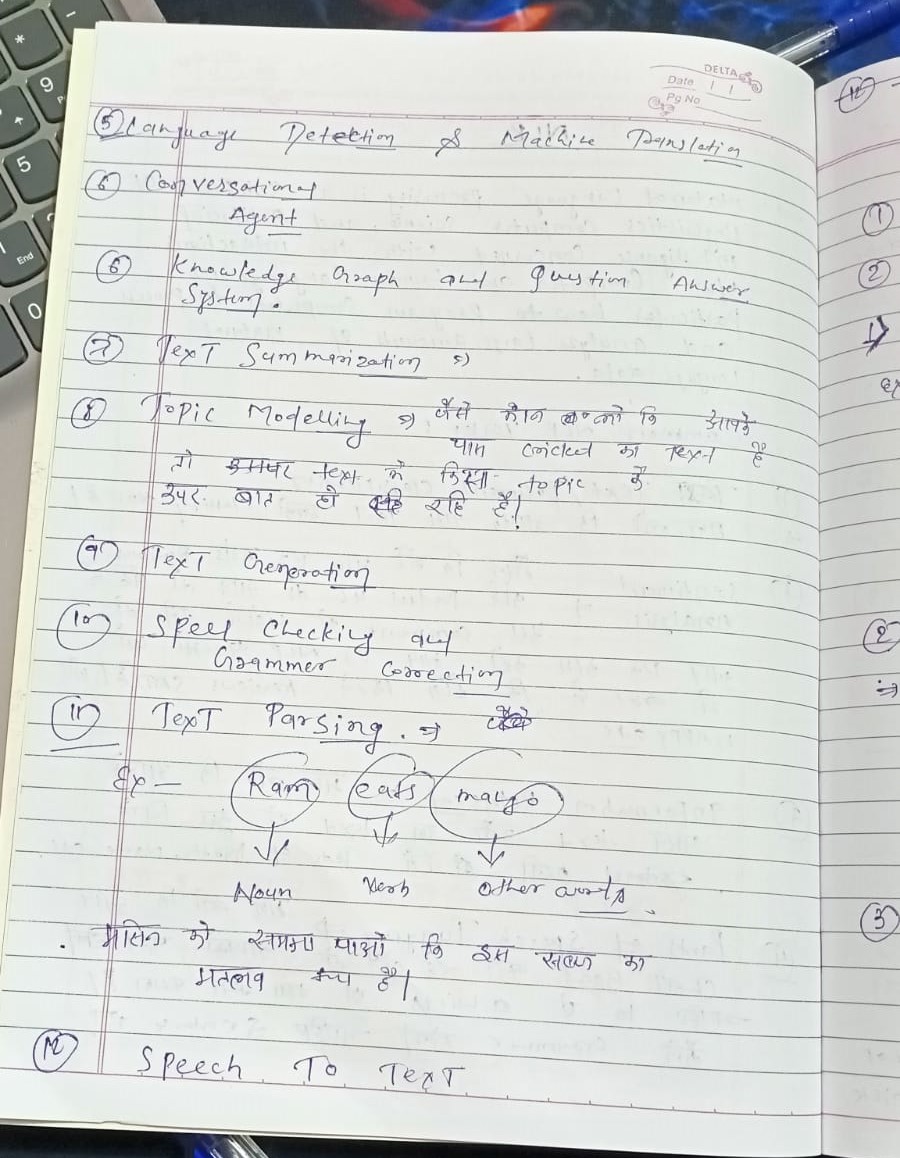 DELTA
Date
Pg No
⑤ Language Detection & Machine Translation
⑥ Conversational
Agent
⑥ Knowledge Graph and Question Answer
System.
⑦ Text Summarization ⇒
⑧ Topic Modelling ⇒ जैसे मान लो कि आपके
पास cricket का text है
तो text में किस topic के
उपर बात हो रहि है।
⑨ Text Generation
⑩ Spell Checking and
Grammer Correction
⑪ Text Parsing. ⇒
Ex - Ram eats mango
Noun Verb Other words
. मसिन को समझा पाओ कि इस का
मतलब क्या है।
⑫ Speech To Text
*
-
9
+
5
End
0
①
②
②
⇒
③